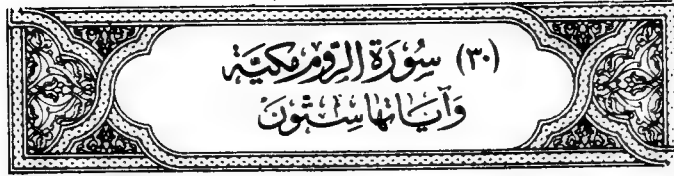 (٣٠) سُورَة الرّوم مكيّة
وَآياتها سِتّونَ